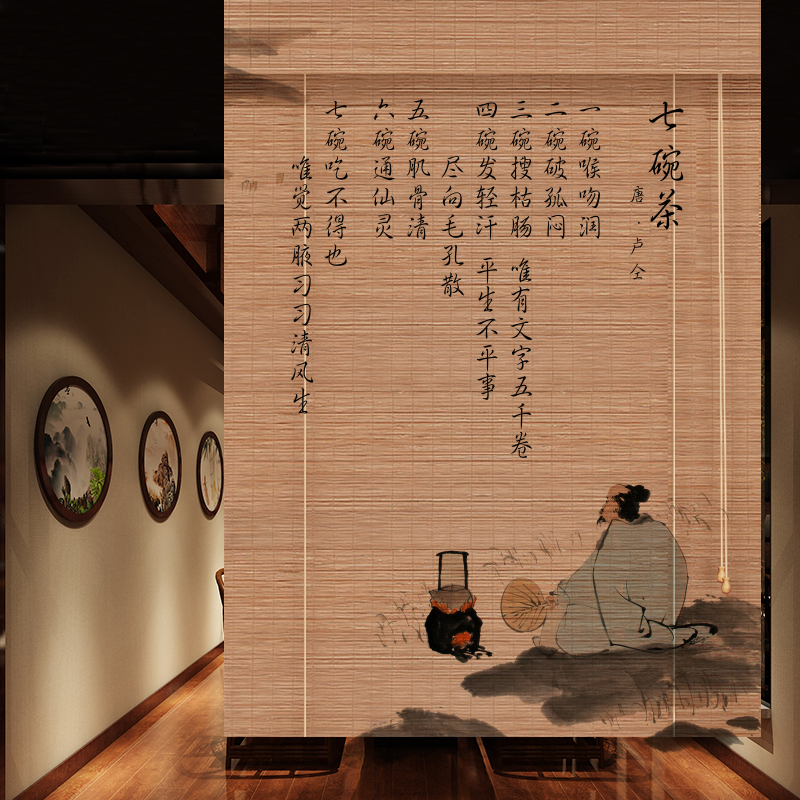 七碗茶
唐·卢仝
一碗喉吻润
二碗破孤闷
三碗搜枯肠 唯有文字五千卷
四碗发轻汗 平生不平事
尽向毛孔散
五碗肌骨清
六碗通仙灵
七碗吃不得也
唯觉两腋习习清风生